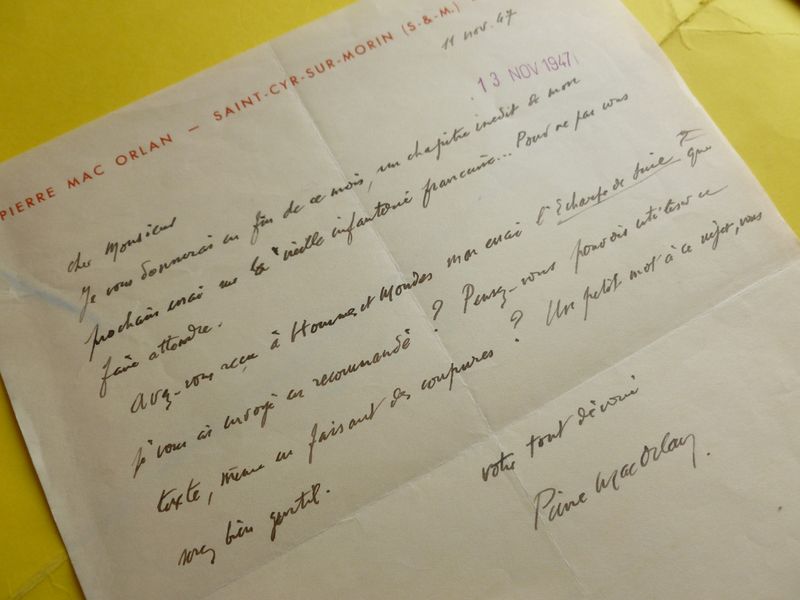 PIERRE MAC ORLAN — SAINT-CYR-SUR-MORIN (S.-&-M.)
11 nov. 47
13 NOV 1947
Cher Monsieur
Je vous donnerai en fin de ce mois, un chapitre inédit de mon
prochain essai sur la vieille infanterie française... Pour ne pas vous
faire attendre.
Avez-vous reçu à Hommes et Mondes mon essai l'Écharpe de Suie que
je vous ai envoyé en recommandé ? Pensez-vous pouvoir utiliser ce
texte, même en faisant des coupures ? Un petit mot à ce sujet, vous
serez bien gentil.
votre tout dévoué
Pierre Mac Orlan.